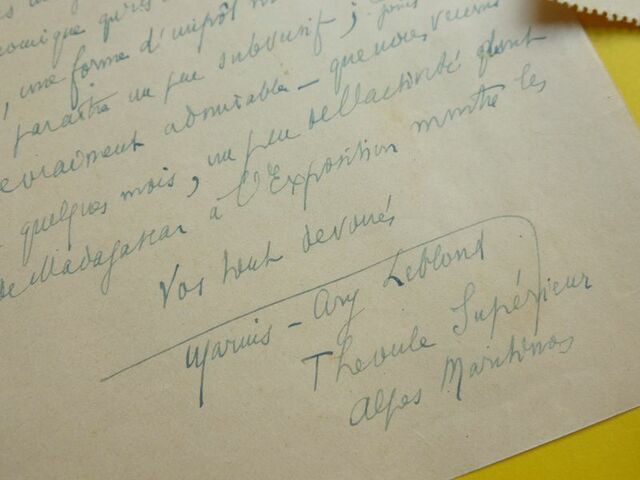 omique qu'ils
, une forme d'impôt
paraître un peu subversif ; Joins
vraiment admirable — que nous venons
quelques mois, un peu de l'activité dont
de Madagascar à l'Exposition montre les
Vos tout dévoués
Marius - Ary Leblond
Theoule Supérieur
Alpes Maritimes